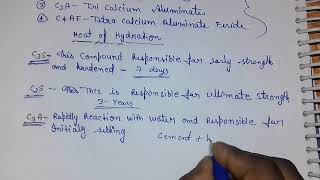 ③ C₃A - Tri Calcium Aluminate
④ C4AF - Tetra calcium Aluminate Feride
Heat of Hydration
C₃S - This Compound Responsible for early strength
and hardened - 7 days
C₂S - This is Responsible for ultimate strength
3-years
C₃A - Rapidly Reaction with water and Responsible for
Initially setting
Cement +